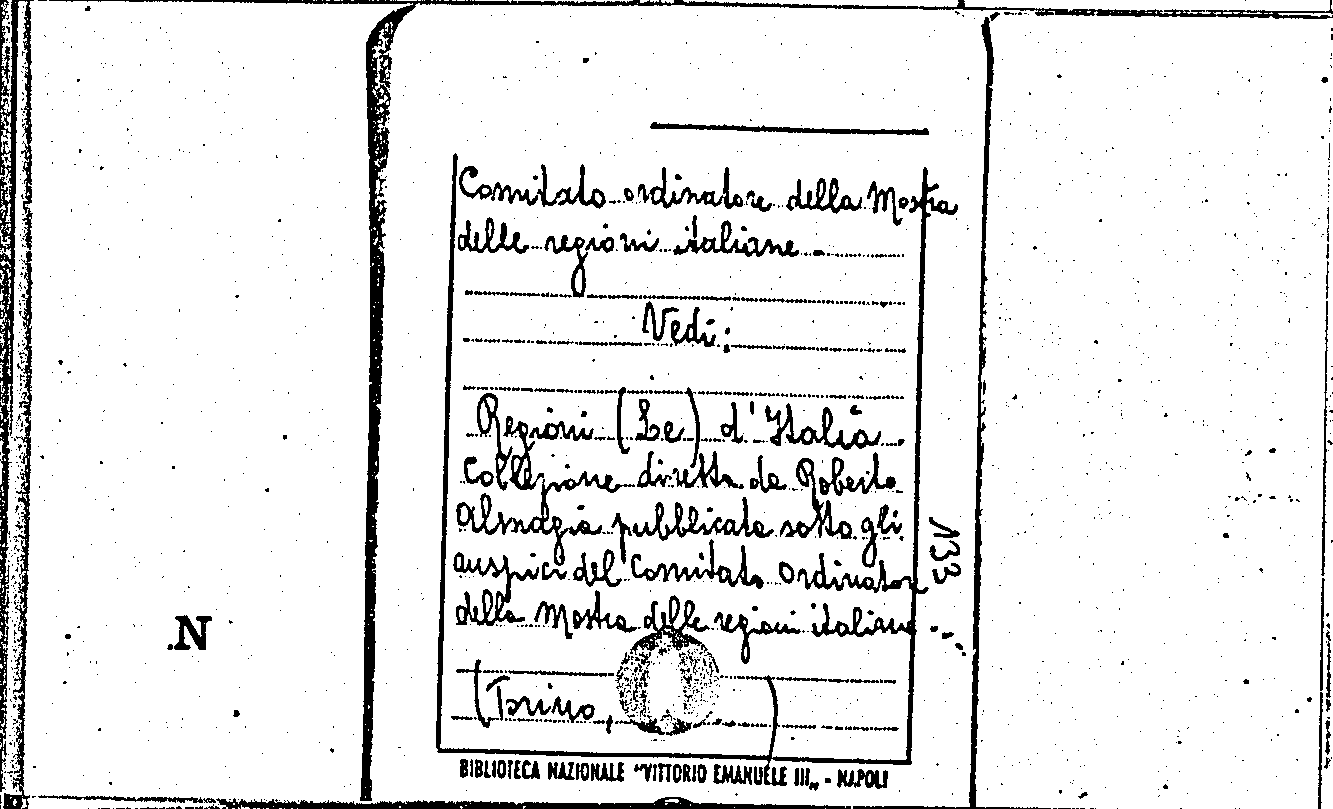 Comitato ordinatore della Mostra
delle regioni italiane.
Vedi:
Regioni (Le) d'Italia.
Collezione diretta da Roberto
Almagia pubblicata sotto gli
auspici del Comitato Ordinatore
della Mostra delle regioni italiane...
(Torino, )
N33
.N
BIBLIOTECA NAZIONALE "VITTORIO EMANUELE III„ - NAPOLI